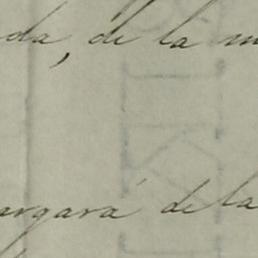 da, de la m
argará de la